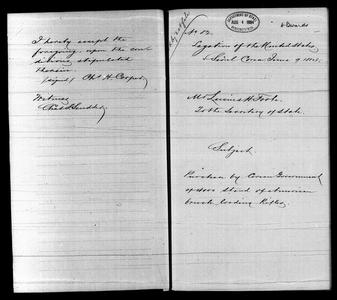 I hereby accept the
foregoing upon the con
ditions stipulated
therein.
(signed) Chs. H. Cooper
Witness
DEPARTMENT OF STATE
AUG 4 1884
No 12.
Legation of the United States
Seoul Corea June 9, 1884.
Mr Lucius H. Foote
To the Secretary of State.
Subject
Purchase by Corean Government
of 4000 Stand of American
breech loading Rifles